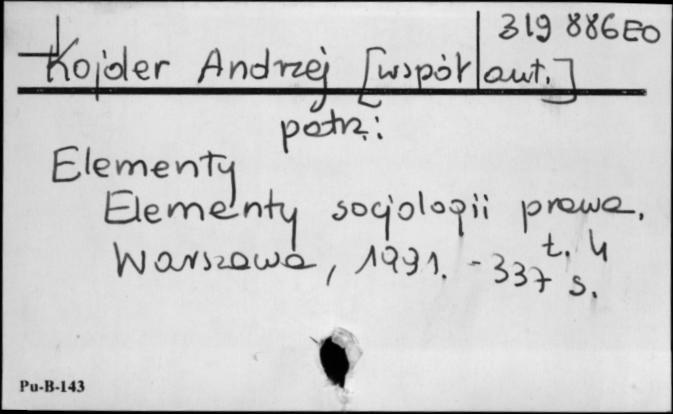 319 886EO
Kojder Andrzej [współaut.]
patrz:
Elementy
Elementy socjologii prawa.
t. 4
Warszawa, 1991. - 337 s.
Pu-B-143